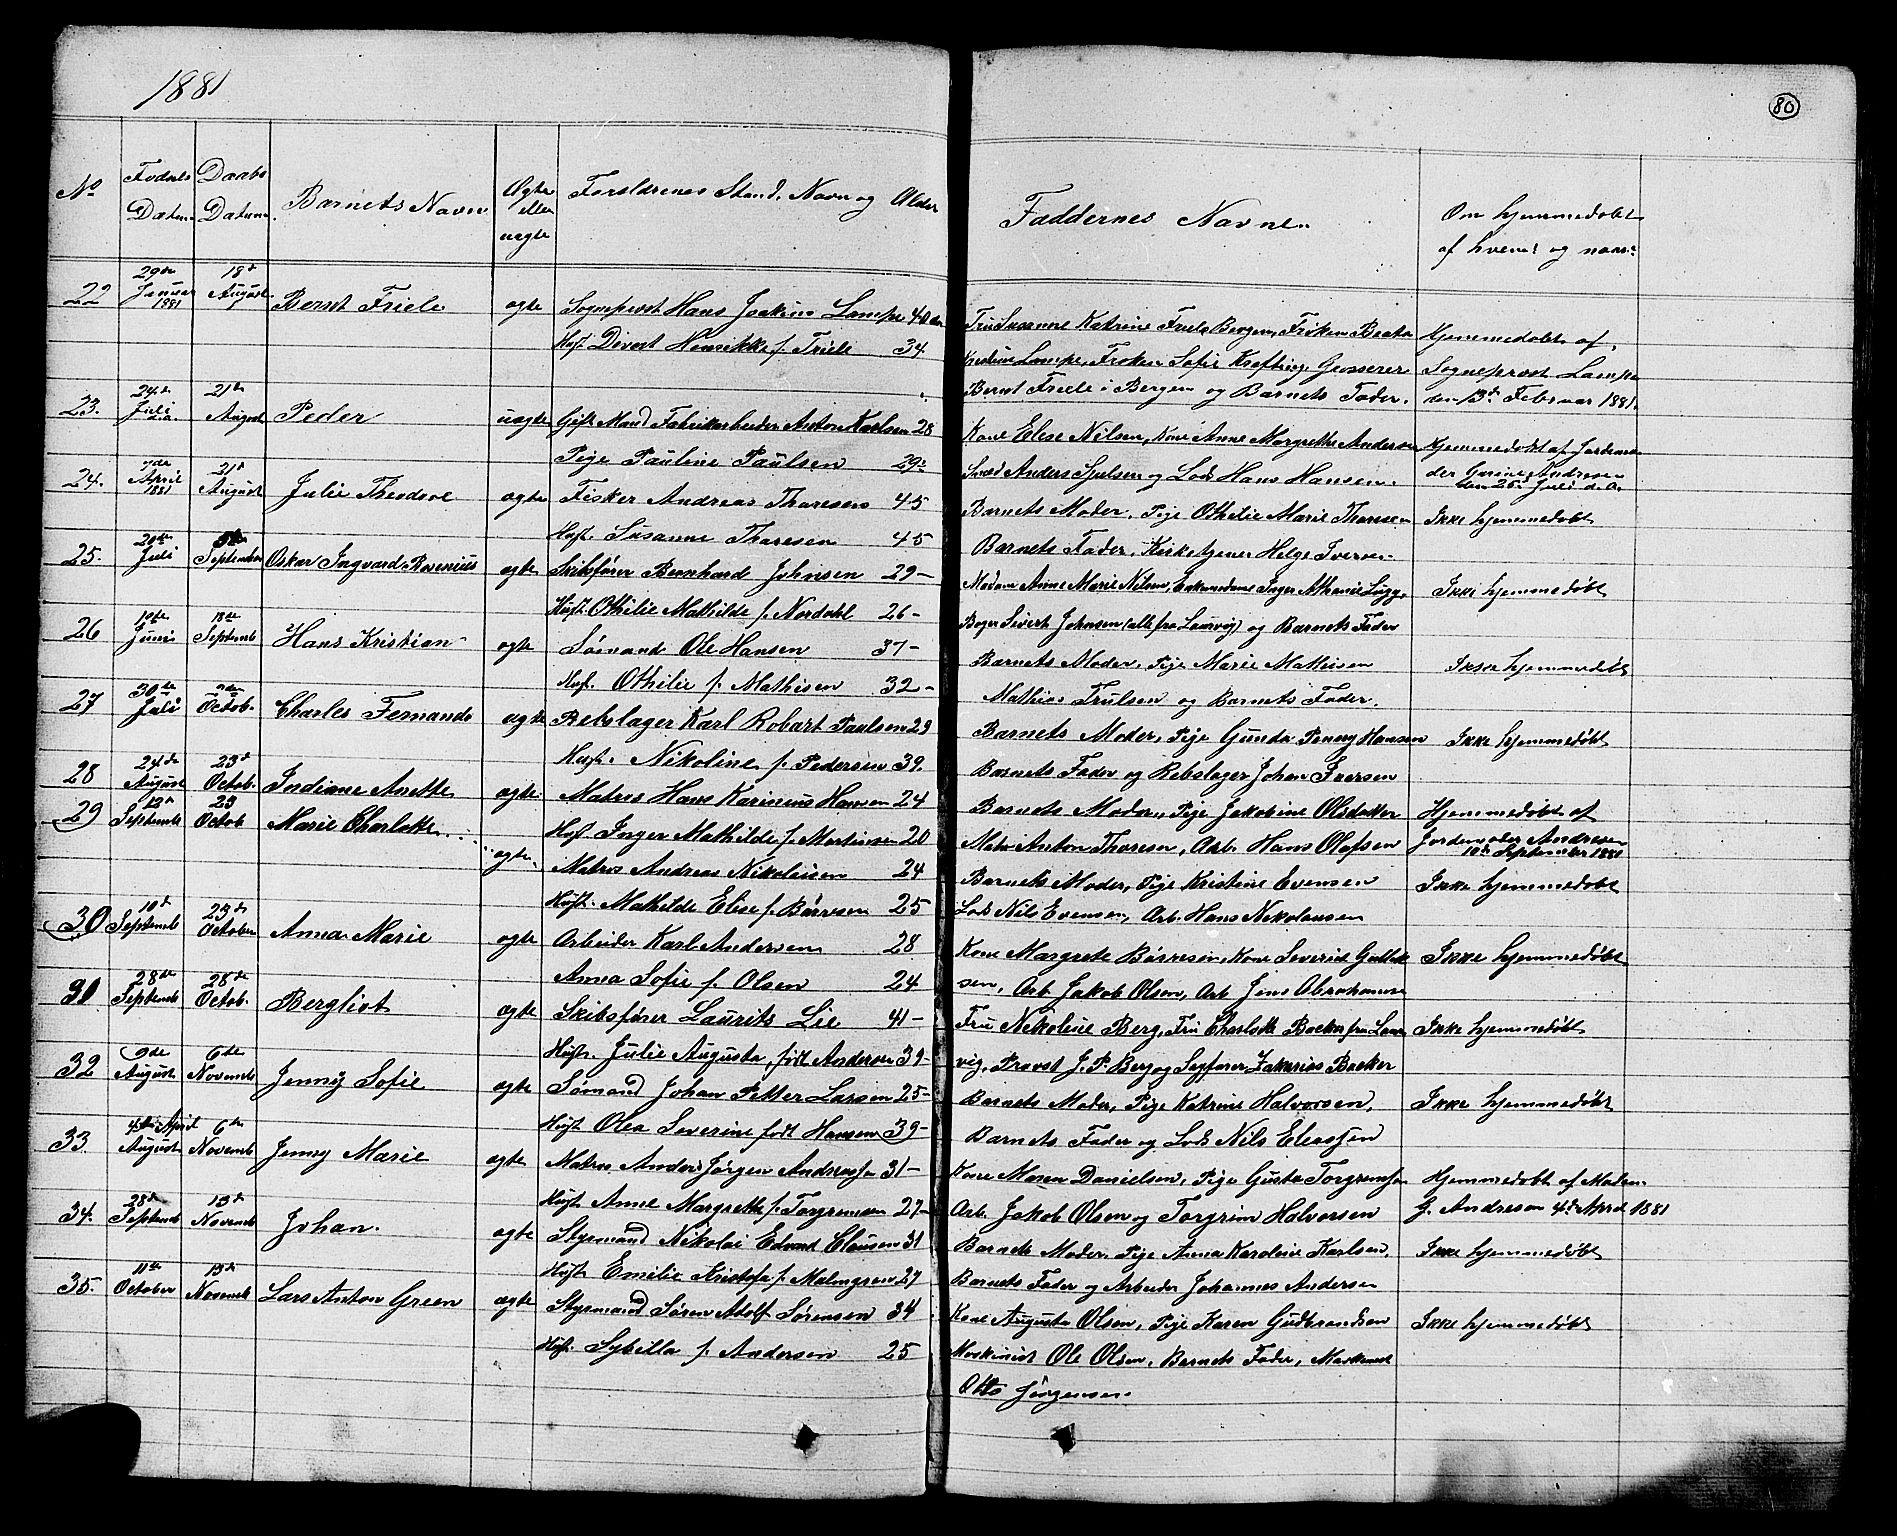 1881
80
No
Fødsels Datum
Daabs Datum
Barnets Navn
Ægte eller uægte
Forældrenes Stand, Navn og Alder
Faddernes Navne
Om hjemmedøbt af hvem? og naar?
22 29de Januar 1881 18d August Bernt Friele ægte Sogneprest Hans Joakim Lampe 40
Hust. Divert Henrikke f. Friele 34
Fru Susanne Katrine Friele Bergen, Frøken Beata
Kristine Lampe, Frøken Sofie Krefting, Grosserer
Bernt Friele i Bergen og Barnets Fader.
Hjemmedøbt af
Sogneprest Lampe
den 13d Februar 1881.
23. 24de Juli d.a. 21de August Peder uægte Gift Mand Fabrikarbeider Anton Karlsen 28
Pige Pauline Paulsen 29
Kone Elise Nilsen, Kone Anne Margrethe Andersen
Anders Sjulsen og Lods Hans Hansen.
Hjemmedøbt af Jordemo
der Andresen
den 25d Juli d.a.
24. 7de April 1881 21d August Julie Theodore ægte Fisker Andreas Thoresen 45
Hust. Susanne Thoresen 45
Barnets Moder, Pige Othilie Marie Thoresen
Barnets Fader, Kirketjener Helge Iversen
Ikke hjemmedøbt
25. 20de Juli September Oskar Ingvard Rosenius ægte Skibsfører Bernhard Johnsen 29
Hust. Othilie Mathilde f. Nordahl 26
Madam Anne Marie Nilsen, Inger Athanie Lugg,
Sivert Johnsen (alle fra Laurvig) og Barnets Fader
Ikke hjemmedøbt
26 10de Juni 18de Septemb Hans Kristian ægte Sømand Ole Hansen 37
Hust. Othilie f. Mathisen 32
Barnets Moder, Pige Marie Mathisen
Mathias Trulsen og Barnets Fader.
Ikke hjemmedøbt
27 30de Juli 2de Octob. Charles Fernando ægte Rebslager Karl Robart Paulsen 29
Hust. Nikoline f. Pedersen 39.
Barnets Moder, Pige Gunda Penny Hansen
Barnets Fader og Rebslager Johan Iversen
Ikke hjemmedøbt
28 24de August 23d Octob. Indiane Anette ægte Matros Hans Karinius Hansen 24
Hust. Inger Mathilde f. Martinsen 20
Barnets Moder, Pige Jakobine Olsdatter
Matr Anton Thoresen, Arb. Hans Olafsen
Hjemmedøbt af
Jordemoder Andresen
10de September 1881
29 12d Septemb 23 Octob Marie Charlotte ægte Matros Andreas Nikolaisen 24
Hust. Mathilde Elise f. Børresen 25
Barnets Moder, Pige Kristine Evensen
Lods Nils Evensen, Arb. Hans Nikolausen
Ikke hjemmedøbt
30 10d Septemb 23de October Anna Marie ægte Arbeider Karl Andersen 28
Anna Sofie f. Olsen 24
Kone Margrete Børresen, Kone Severine Gullik
sen, Arb Jakob Olsen, Arb Jens Abrahamsen
Ikke hjemmedøbt
31. 28de Septemb 28de Octob. Bergliot ægte Skibsfører Laurits Lie 41
Hust. Julie Augusta, født Andersen 39
Fru Nikoline Berg, Fru Charlotte Backer fra Laur
vig, Provst J. P. Berg og Zakarias Backer
Ikke hjemmedøbt
32 9de August 6te Novemb Jenny Sofie ægte Sømand Johan Petter Larsen 25
Hust Olea Severine født Hansen 39
Barnets Moder, Pige Katrine Halvorsen,
Barnets Fader og Lods Nils Eliassen
Ikke hjemmedøbt
33. 4de April August 6te Novemb Jenny Marie ægte Matros Anders Jørgen Andreassen 31
Hust Anne Margrethe f. Torgrimsen 27
Kone Maren Danielsen, Pige Gusta Torgrimsen
Arb. Jakob Olsen og Torgrim Halvorsen
Hjemmedøbt af Madam
G. Andresen 4d April 1881
34. 28d Septemb 13d Novemb Johan ægte Styrmand Nikolai Edvard Clausen 31
Hust Emilie Kristofa f. Malmgren 27
Barnets Moder, Pige Anna Karoline Karlsen,
Barnets Fader og Arbeider Johannes Andersen
Ikke hjemmedøbt
35. 11te October 13d Novemb Lars Anton Green ægte Styrmand Søren Adolf Sørensen 34
Hust. Sybilla f. Andersen 25
Kone Augusta Olsen, Pige Karen Gudbrandsen
Maskinist Ole Olsen, Barnets Fader, Maskinist
Otto Jørgensen.
Ikke hjemmedøbt